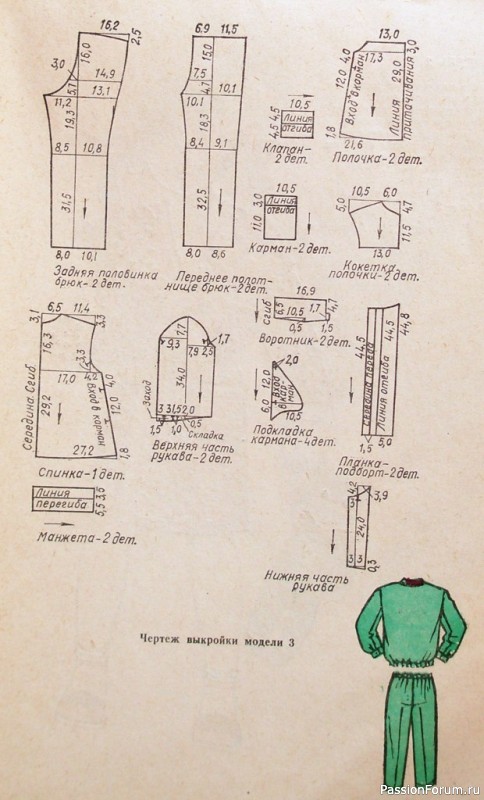 16,2
2,5
16,0
3,0
5,1
14,9
13,1
11,2
19,3
8,5
10,8
31,5
8,0
10,1
Задняя половинка
брюк-2 дет.
6,9
11,5
15,0
7,5
4,7
10,1
10,1
18,3
8,4
9,1
32,5
8,0
8,6
Переднее полот-
нище брюк-2 дет.
10,5
4,5 4,5
Линия
отгиба
Клапан-
2 дет.
13,0
3,0
4,0
17,3
12,0
Вход в карман
29,0
Линия
притачивания
1,8
21,6
Полочка-2 дет.
10,5
11,0 3,0
Линия
отгиба
Карман-2 дет.
10,5
6,0
5,0
4,7
11,5
13,0
Кокетка
полочки-2 дет.
6,5
11,4
3,1
3,3
16,3
3,3
17,0
4,2
4,0
Середина. Сгиб
29,2
Вход в карман
12,0
27,2
1,8
Спинка-1 дет.
7,7
9,3
1,7
7,9
2,5
34,0
Заход
3 3 1,5 2,0
0,5
1,5
1,0
Складка
Верхняя часть
рукава-2 дет.
16,9
Сгиб
6,5
10,5
1,7
4,7
0,5
1,5
Воротник-2 дет.
2,0
12,0
Вход
в кар-
ман
6,0
10,5
Подкладка
кармана-4 дет.
44,5
Середина переда
Линия отгиба
44,5
44,8
1,5
5,0
Планка-
подборт-2 дет.
Линия
перегиба
5,5 3,9
Манжета-2 дет.
4,2
3,9
3
24,0
3
3
0,3
Нижняя часть
рукава
Чертеж выкройки модели 3
PassionForum.ru